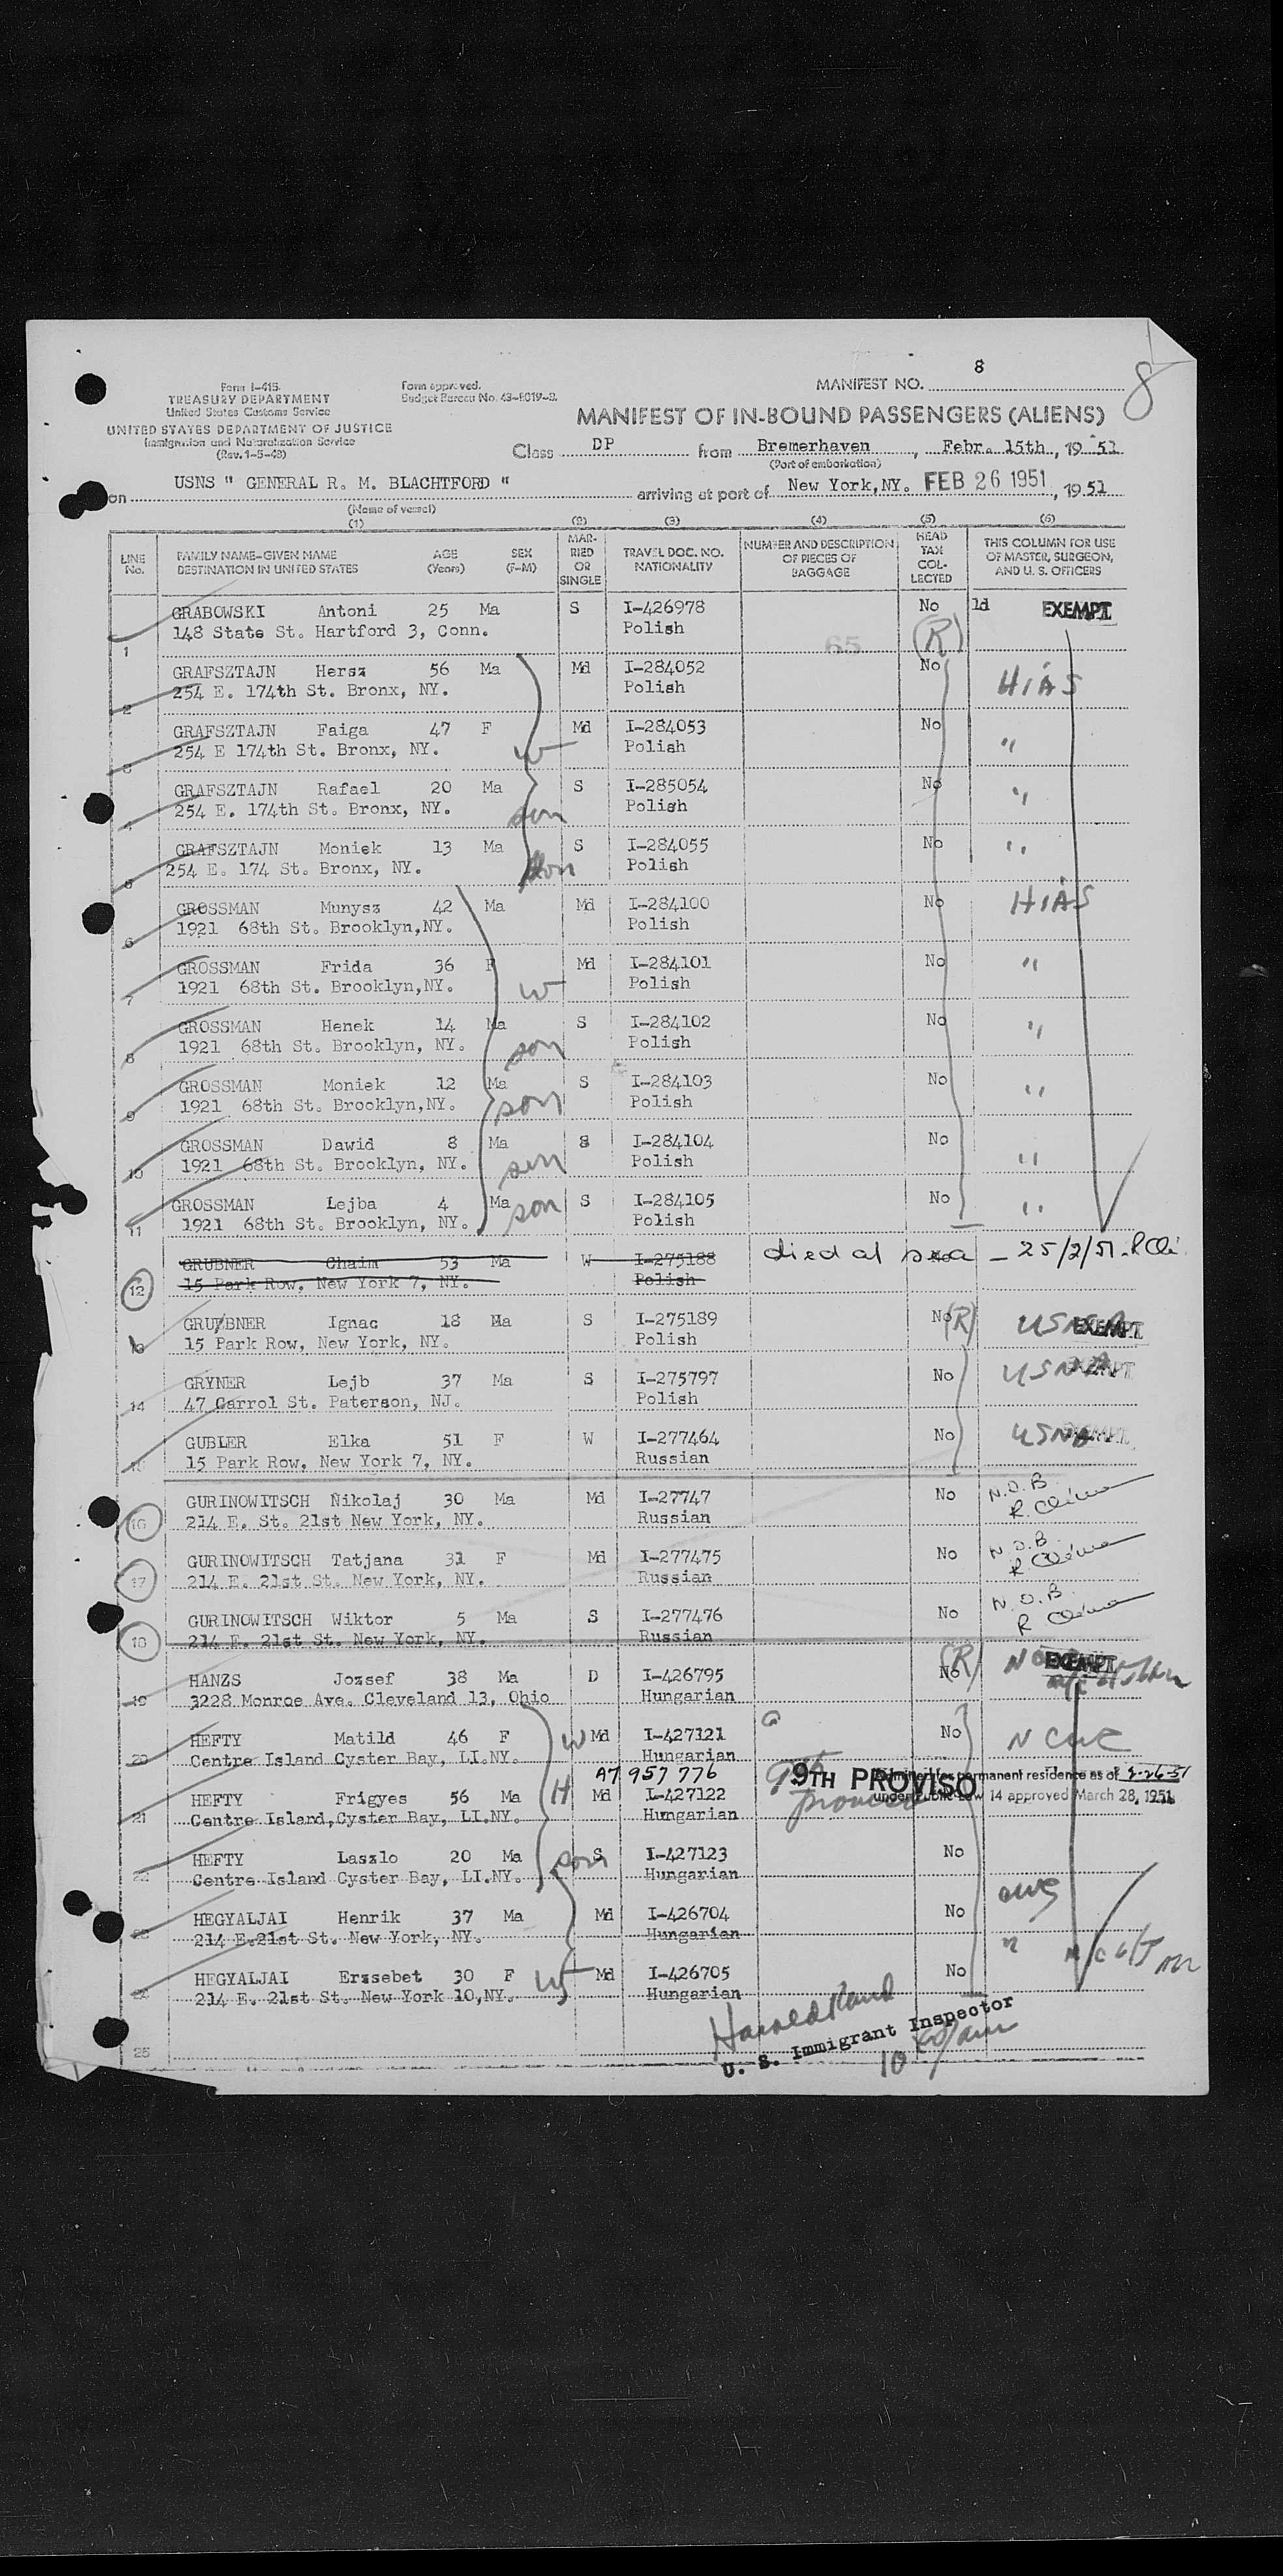 8
Form I-415
TREASURY DEPARTMENT
United States Customs Service
UNITED STATES DEPARTMENT OF JUSTICE
Immigration and Naturalization Service
(Rev. 1-5-48)
Form approved.
Budget Bureau No. 43-R019-2.
MANIFEST NO. 8
MANIFEST OF IN-BOUND PASSENGERS (ALIENS)
Class DP from Bremerhaven, Febr. 15th, 1951
(Port of embarkation)
on USNS " GENERAL R. M. BLACHTFORD " arriving at port of New York, NY. FEB 26 1951, 1951
(Name of vessel)
(1) (2) (3) (4) (5) (6)
LINE No. FAMILY NAME-GIVEN NAME DESTINATION IN UNITED STATES AGE (Years) SEX (F-M) MARRIED OR SINGLE TRAVEL DOC. NO. NATIONALITY NUMBER AND DESCRIPTION OF PIECES OF BAGGAGE HEAD TAX COLLECTED THIS COLUMN FOR USE OF MASTER, SURGEON, AND U. S. OFFICERS
GRABOWSKI Antoni 25 Ma S I-426978 No 1d EXEMPT
1 148 State St. Hartford 3, Conn. Polish 65 (R)
GRAFSZTAJN Hersz 56 Ma Md I-284052 No HIAS
2 254 E. 174th St. Bronx, NY. Polish
GRAFSZTAJN Faiga 47 F Md I-284053 No "
3 254 E 174th St. Bronx, NY. w Polish
GRAFSZTAJN Rafael 20 Ma S I-285054 No "
4 254 E. 174th St. Bronx, NY. son Polish
GRAFSZTAJN Moniek 13 Ma S I-284055 No "
5 254 E. 174 St. Bronx, NY. son Polish
GROSSMAN Munysz 42 Ma Md I-284100 No HIAS
6 1921 68th St. Brooklyn,NY. Polish
GROSSMAN Frida 36 F Md I-284101 No "
7 1921 68th St. Brooklyn,NY. w Polish
GROSSMAN Henek 14 Ma S I-284102 No "
8 1921 68th St. Brooklyn, NY. son Polish
GROSSMAN Moniek 12 Ma S I-284103 No "
9 1921 68th St. Brooklyn,NY. son Polish
GROSSMAN Dawid 8 Ma S I-284104 No "
10 1921 68th St. Brooklyn, NY. son Polish
GROSSMAN Lejba 4 Ma son S I-284105 No "
11 1921 68th St. Brooklyn, NY. Polish
GRUBNER Chaim 53 Ma W I-275188 died at sea - 25/2/51
12 15 Park Row, New York 7, NY. Polish
GRUBNER Ignac 18 Ma S I-275189 No (R) USNA EXEMPT
13 15 Park Row, New York, NY. Polish
GRYNER Lejb 37 Ma S I-275797 No USNA EXEMPT
14 47 Carrol St. Paterson, NJ. Polish
GUBLER Elka 51 F W I-277464 No USNA EXEMPT
15 15 Park Row, New York 7, NY. Russian
GURINOWITSCH Nikolaj 30 Ma Md I-27747 No N.O.B
16 214 E. St. 21st New York, NY. Russian
GURINOWITSCH Tatjana 31 F Md I-277475 No N.O.B
17 214 E. 21st St. New York, NY. Russian
GURINOWITSCH Wiktor 5 Ma S I-277476 No N.O.B
18 214 E. 21st St. New York, NY. Russian
HANZS Jozsef 38 Ma D I-426795 No (R) EXEMPT
19 3228 Monroe Ave. Cleveland 13, Ohio Hungarian
HEFTY Matild 46 F W Md I-427121 No NCWC
20 Centre Island Cyster Bay, LI.NY. Hungarian
A7 957 776 9th proviso 9TH PROVISO Admitted for permanent residence as of 2-26-51
HEFTY Frigyes 56 Ma H Md I-427122 under Public Law 14 approved March 28, 1951
21 Centre Island,Cyster Bay, LI.NY. Hungarian
HEFTY Laszlo 20 Ma son S I-427123 No
22 Centre Island Cyster Bay, LI.NY. Hungarian
HEGYALJAI Henrik 37 Ma Md I-426704 No CWS
23 214 E.21st St. New York, NY. Hungarian "
HEGYALJAI Erzsebet 30 F W Md I-426705 No
24 214 E. 21st St. New York 10,NY. Hungarian
25
U. S. Immigrant Inspector
10 am